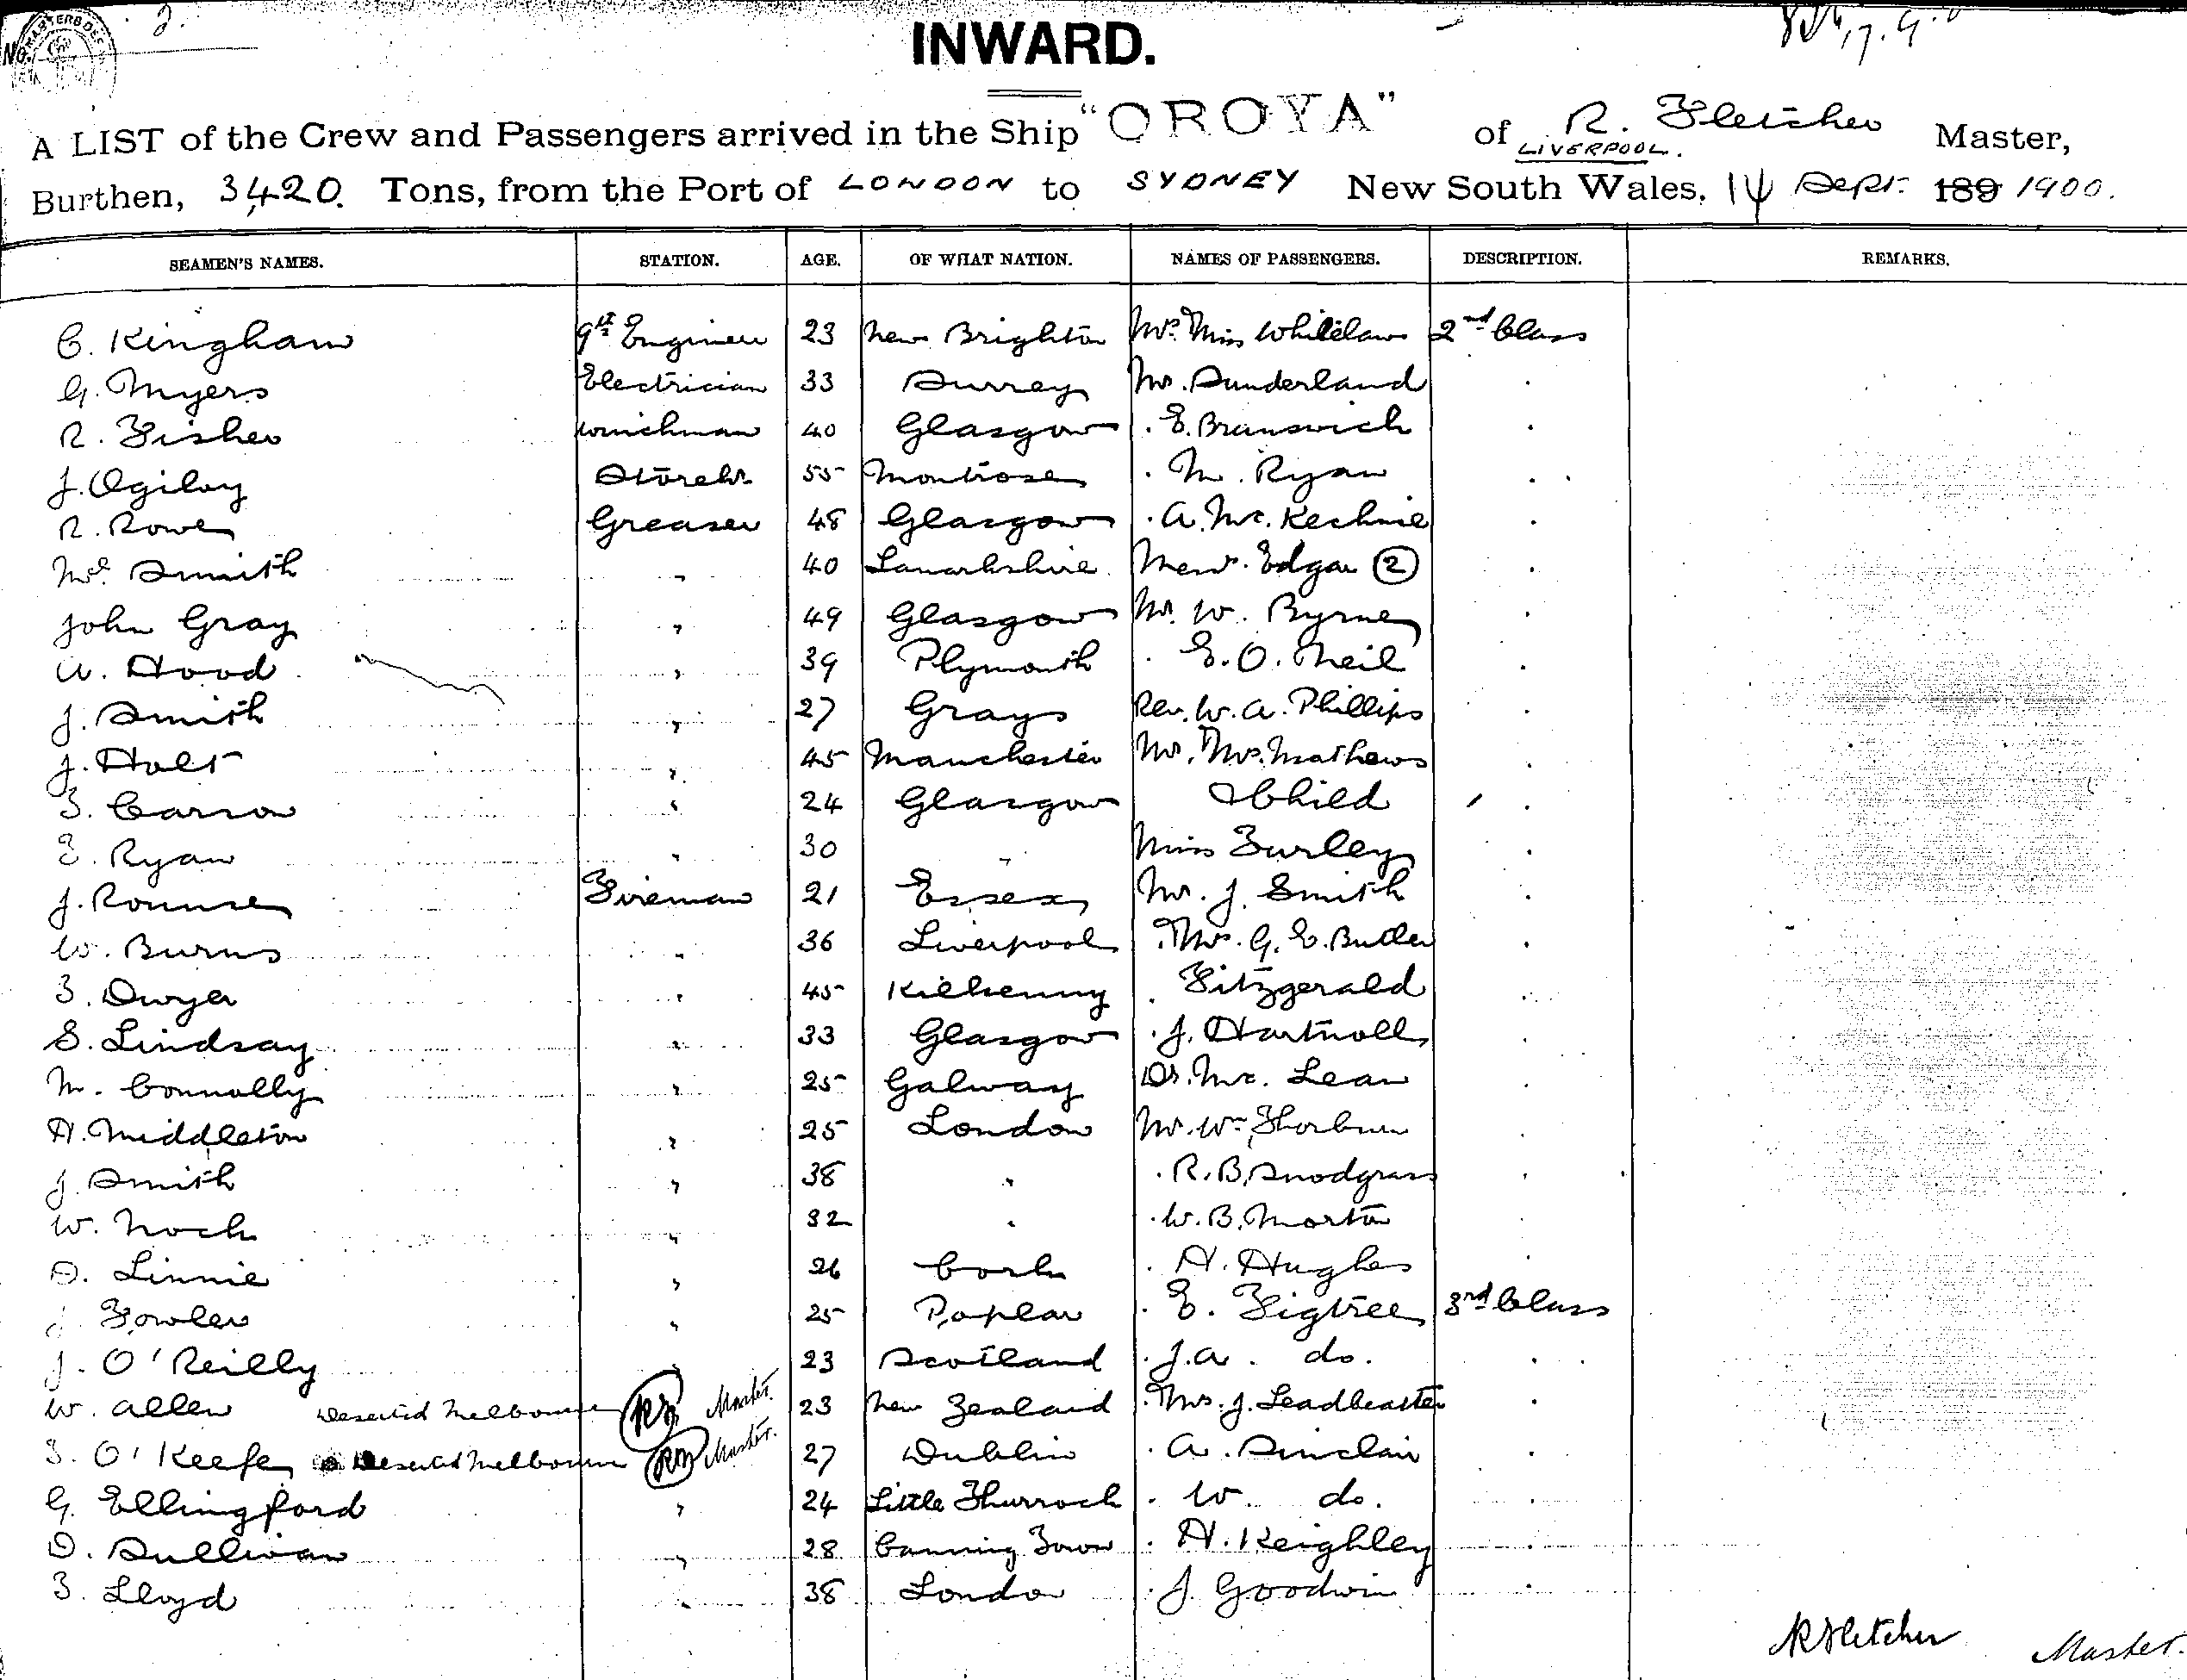 No. 2.
INWARD.
A LIST of the Crew and Passengers arrived in the Ship "OROYA" of LIVERPOOL. R. Fletcher Master,
Burthen, 3420 Tons, from the Port of LONDON to SYDNEY New South Wales, 14 Sept. 189 1900.
SEAMEN'S NAMES. STATION. AGE. OF WHAT NATION. NAMES OF PASSENGERS. DESCRIPTION. REMARKS.
C. Kingham 9th Engineer 23 New Brighton Mrs. Miss Whitelaw 2nd Class
G. Myers Electrician 33 Surrey Mr. Sunderland "
R. Fisher Winchman 40 Glasgow " E. Brunswick "
J. Ogilvy Storekr 55 Montrose " M. Ryan "
R. Rowe Greaser 48 Glasgow " A. McKechnie "
Smith " 40 Lanarkshire Edgar (2) "
John Gray " 49 Glasgow Mr. W. Byrne "
W. Hood " 39 Plymouth " E. O. Neil "
J. Smith " 27 Grays Rev. W. A. Phillips "
J. Holt " 45 Manchester Mr. Mrs. Mathews "
T. Carson " 24 Glasgow & Child "
T. Ryan " 30 " Miss Turley "
J. Rounse Fireman 21 Essex Mr. J. Smith "
W. Burns " 36 Liverpool Mrs. G. E. Butler "
T. Dwyer " 45 Kilkenny " Fitzgerald "
S. Lindsay " 33 Glasgow " J. Hartnoll "
M. Connolly " 25 Galway Dr. McLean "
H. Middleton " 25 London Mr. Wm Thorburn "
J. Smith " 38 " " R. B. Snodgrass "
W. Noch " 32 " " W. B. Morton "
D. Linnie " 26 Cork " H. Hughes "
J. Fowler " 25 Poplar " E. Figtree 3rd Class
J. O'Reilly " 23 Scotland " J. A. do. "
W. Allen Deserted Melbourne Master. 23 New Zealand " Mrs. J. Leadbeater "
T. O'Keefe Deserted Melbourne Master. 27 Dublin " A. Sinclair "
G. Ellingford " 24 Little Thurrock " W. do. "
D. Sullivan " 28 Canning Town " H. Keighley "
T. Lloyd " 38 London " J. Goodwin "
R Fletcher Master.